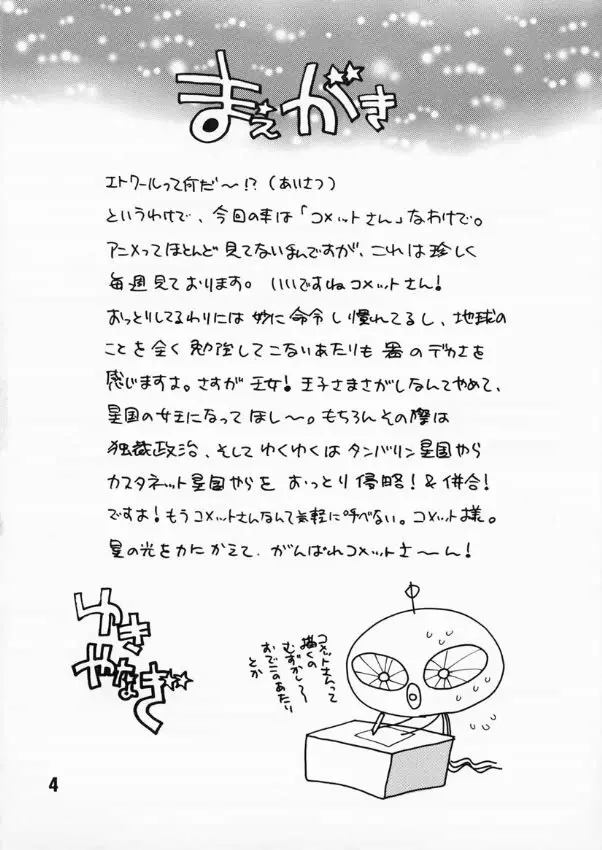 まえがき
エトワールって何だ〜!?(あいさつ)
というわけで、今回の本は「コメットさん」なわけで。
アニメってほとんど見てないんですが、これは珍しく
毎週見ております。いいですねコメットさん!
おっとりしてるわりには妙に命令し慣れてるし、地球の
ことを全く勉強してこないあたりも器のデカさを
感じますよ。さすが王女!王子さまさがしなんてやめて、
星国の女王になってほし〜。もちろんその際は
独裁政治、そしてゆくゆくはタンバリン星国やら
カスタネット星国やらをおっとり侵略!&併合!
ですよ!もうコメットさんなんて気軽に呼べない。コメット様。
星の光を力にかえて、がんばれコメットさ〜ん!
ゆき
やなぎ
コメットさんって
描くの
むずかしー
おでこのあたり
とか
4